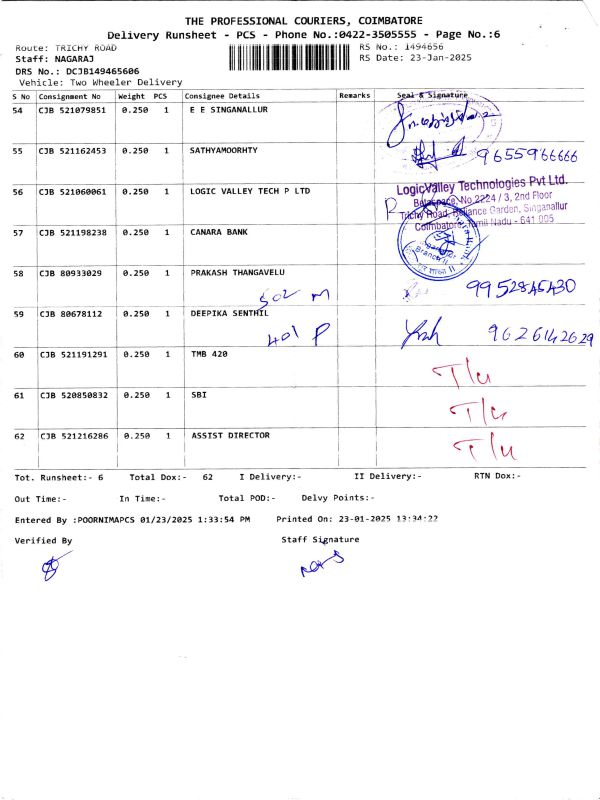 THE PROFESSIONAL COURIERS, COIMBATORE
Delivery Runsheet - PCS - Phone No.:0422-3505555 - Page No.:6
Route: TRICHY ROAD RS No.: 1494656
Staff: NAGARAJ RS Date: 23-Jan-2025
DRS No.: DCJB149465606
Vehicle: Two Wheeler Delivery
S No Consignment No Weight PCS Consignee Details Remarks Seal & Signature
54 CJB 521079851 0.250 1 E E SINGANALLUR
55 CJB 521162453 0.250 1 SATHYAMOORHTY 9655966666
56 CJB 521060061 0.250 1 LOGIC VALLEY TECH P LTD
LogicValley Technologies Pvt Ltd.
No.2224 / 3, 2nd Floor
Trichy Road, Reliance Garden, Singanallur
Coimbatore, Tamil Nadu - 641 005
57 CJB 521198238 0.250 1 CANARA BANK
58 CJB 80933029 0.250 1 PRAKASH THANGAVELU
502 M 9952845430
59 CJB 80678112 0.250 1 DEEPIKA SENTHIL
401 P 9626142629
60 CJB 521191291 0.250 1 TMB 420 T/u
61 CJB 520850832 0.250 1 SBI T/u
62 CJB 521216286 0.250 1 ASSIST DIRECTOR T/u
Tot. Runsheet:- 6 Total Dox:- 62 I Delivery:- II Delivery:- RTN Dox:-
Out Time:- In Time:- Total POD:- Delvy Points:-
Entered By :POORNIMAPCS 01/23/2025 1:33:54 PM Printed On: 23-01-2025 13:34:22
Verified By Staff Signature